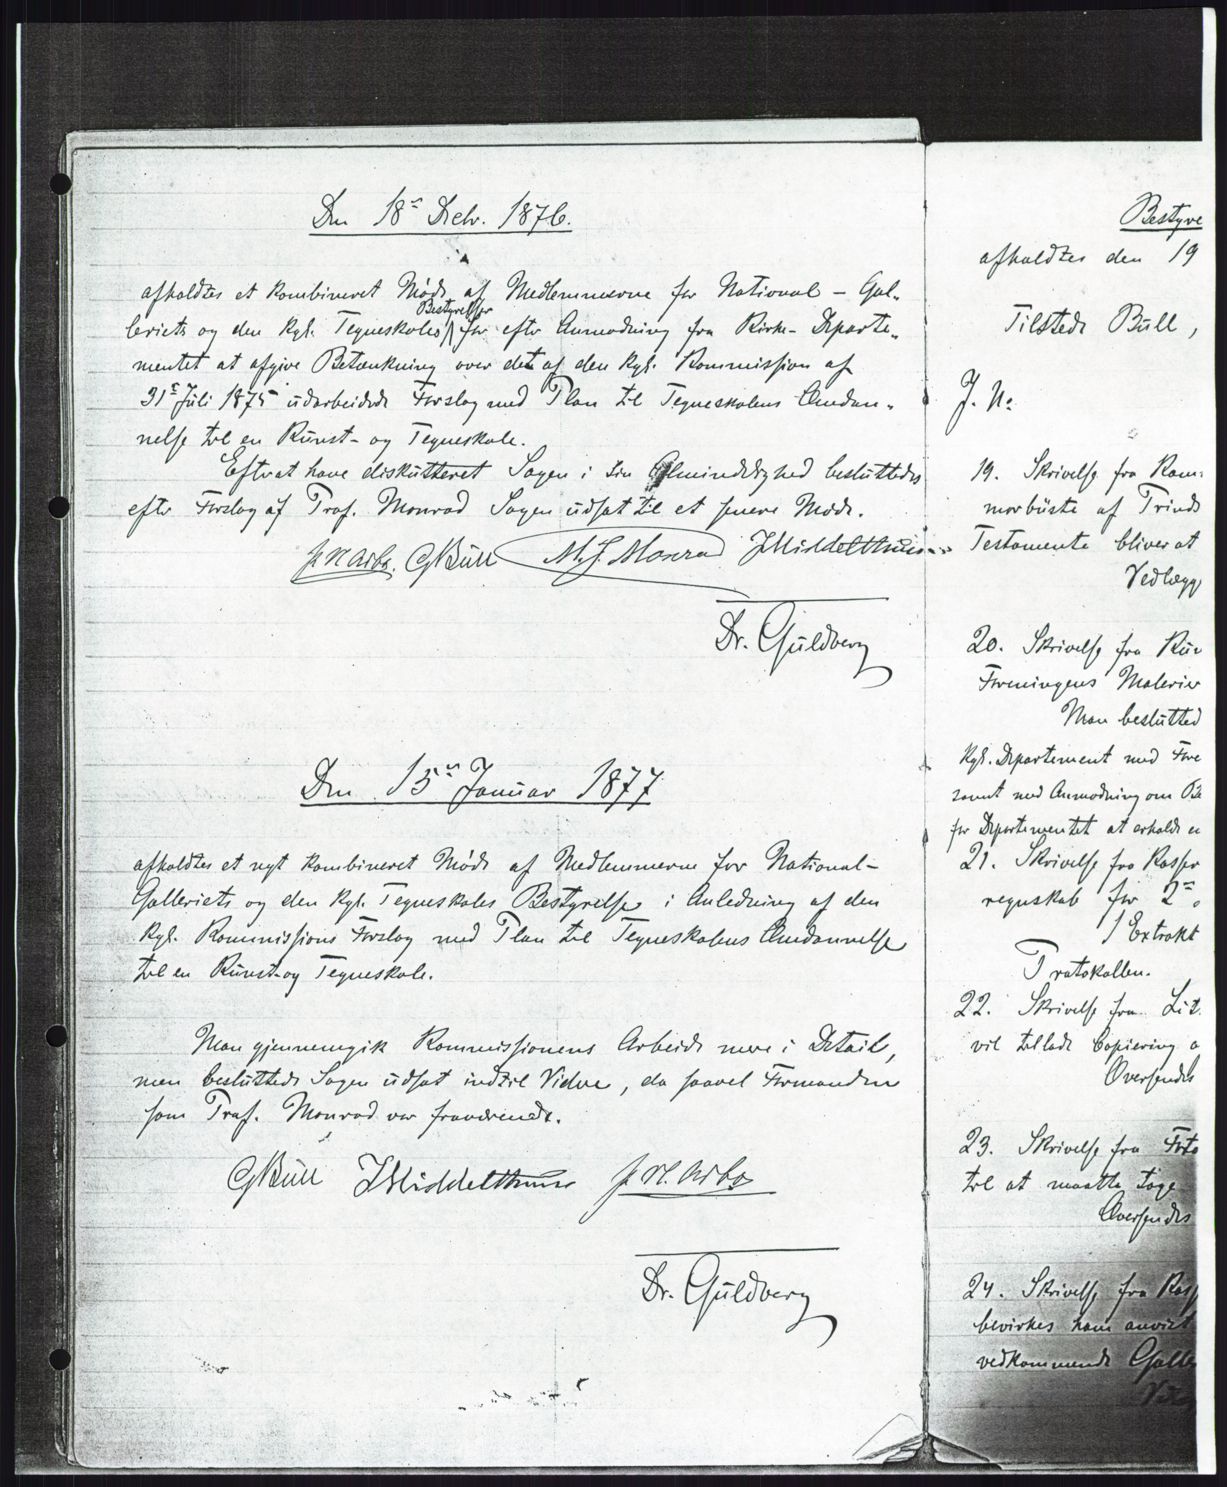 Den 18de Decbr. 1876.
afholdtes et kombineret Møde af Medlemmerne for National-Gal-
leriets og den kgl. Tegneskoles Bestyrelser for efter Anmodning fra Kirke-Departe-
mentet at afgive Betænkning over det af den kgl. Kommission af
31te Juli 1875 udarbeidede Forslag med Plan til Tegneskolens Omdan-
nelse til en Kunst- og Tegneskole.
Efterat have diskutteret Sagen i sin Almindelighed besluttedes
efter Forslag af Prof. Monrad Sagen udsat til et senere Møde.
P N Arbo. G Bull M. J. Monrad J Middelthun
Dr. Guldberg
Den 15de Januar 1877
afholdtes et nyt kombineret Møde af Medlemmerne for National-
Galleriets og den kgl. Tegneskoles Bestyrelse i Anledning af den
kgl. Kommissions Forslag med Plan til Tegneskolens Omdannelse
til en Kunst- og Tegneskole.
Man gjennemgik Kommissionens Arbeide mere i Detail,
men besluttede Sagen udsat indtil Videre, da saavel Formanden
som Prof. Monrad var fraværende.
G Bull J Middelthun P. N. Arbo
Dr. Guldberg
Bestyre
afholdtes den 19
Tilstede Bull,
J. No
19. Skrivelse fra Kam
morbüste af Trinds
Testamente bliver at
Vedlægg
20. Skrivelse fra Kun
Foreningens Malerier
Man beslutted
kgl. Departement med Fore
samt med Anmodning om Be
for Departementet at erholde e
21. Skrivelse fra Kasser
regnskab for 2de
1 Extrakt
Protokollen.
22. Skrivelse fra Lit
vil tillade Copiering a
Oversendes
23. Skrivelse fra Foto
til at maatte tage
Oversendes
24. Skrivelse fra Kass
bevirkes ham anvist
vedkommende Galle